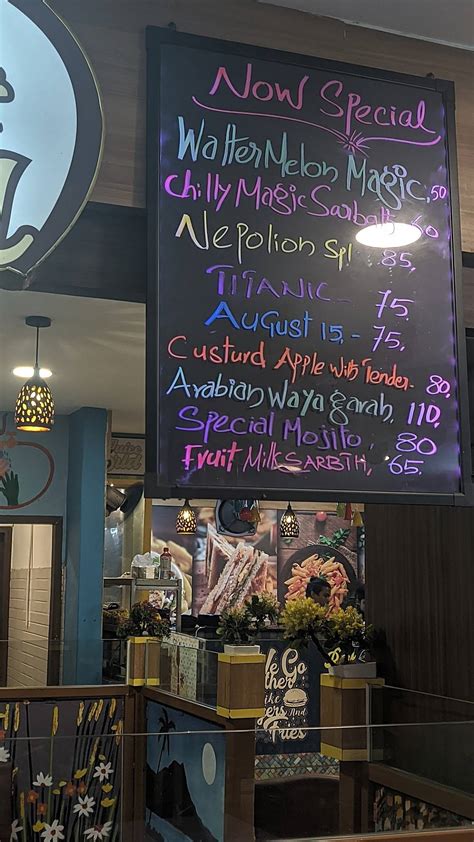 Now Special
Walter Melon Magic, 50
Chilly Magic Sarbath 60
Nepolion Spl 85,
TITANIC - 75,
August 15, - 75,
Custurd Apple With Tender - 80,
Arabian Waya garah, 110,
Special Mojito, 80
Fruit Milk SARBTH, 65,
We Go
ther
like
gers And
Fries